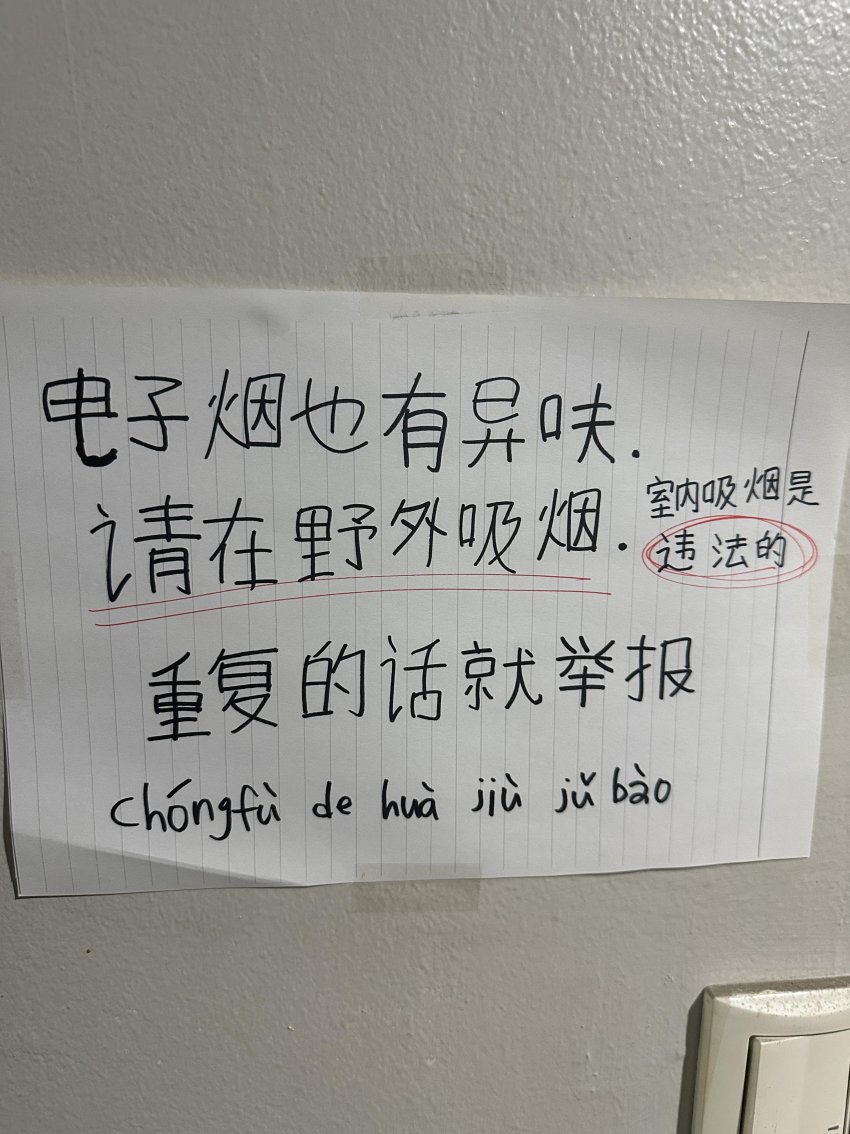 电子烟也有异味.
请在野外吸烟.
室内吸烟是
违法的
重复的话就举报
chóngfù de huà jiù jǔ bào